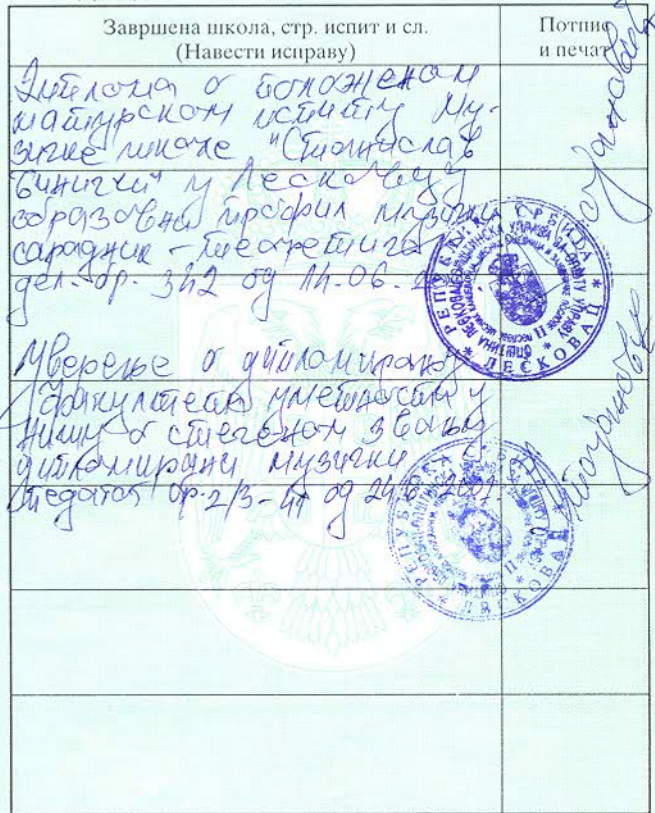 Завршена школа, стр. испит и сл.
(Навести исправу)
Потпис
и печат
Диплома о положеном
матурском испиту Му-
зичке школе "Станислав
Бинички" у Лесковцу
образовни профил музички
сарадник - теоретичар
дел. бр. 342 од 14.06.
Уверење о дипломирању
Факултета уметности у
Нишу о стеченом звању
дипломирани музички
педагог бр. 2/3-
РЕПУБЛИКА СРБИЈА
ЛЕСКОВАЦ
РЕПУБЛИКА
ЛЕСКОВАЦ